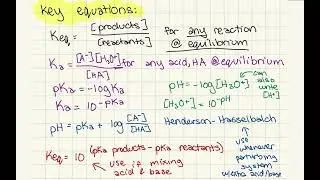 key equations:
Keq = [products] / [reactants] for any reaction @ equilibrium
Ka = [A-][H3O+] / [HA] for any acid, HA @ equilibrium
pKa = -logKa
Ka = 10^-pKa
pH = -log[H3O+]
can also write [H+]
[H3O+] = 10^-pH
pH = pKa + log [A-] / [HA] Henderson-Hasselbalch
use whenever perturbing system w/ extra acid/base
Keq = 10^(pKa products - pKa reactants)
use if mixing acid & base